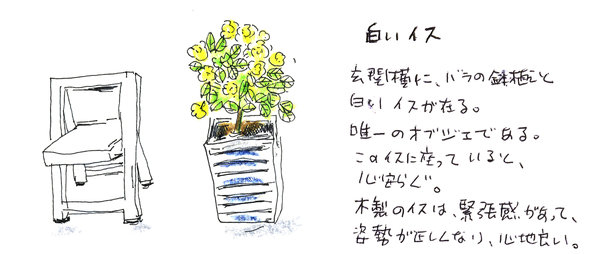 白いイス
玄関横に、バラの鉢植えと
白いイスが在る。
唯一のオブジェである。
このイスに座っていると、
心安らぐ。
木製のイスは、緊張感があって、
姿勢が正しくなり、心地良い。